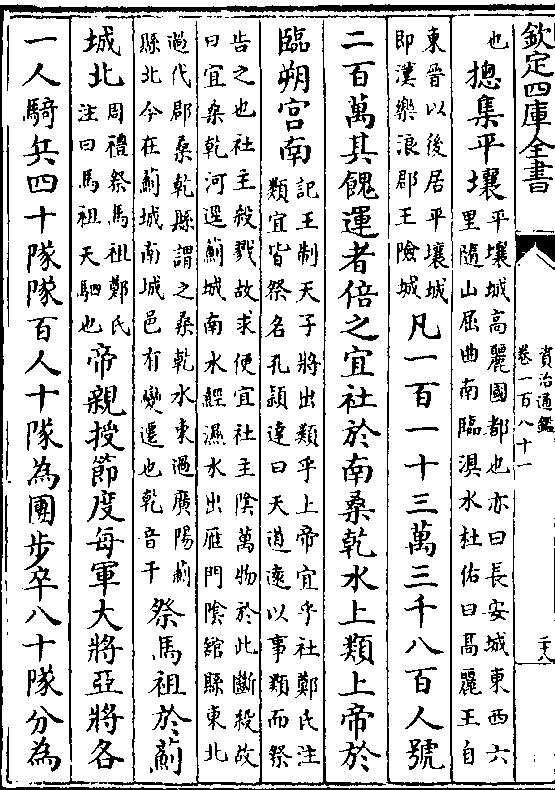 欽定四庫全書
資治通鑑
卷一百八十一
也
摠集平壤
平壤城高麗國都也亦曰長安城東西六
里隨山屈曲南臨浿水杜佑曰高麗王自
東晉以後居平壤城
即漢樂浪郡王險城
凡一百一十三萬三千八百人號
二百萬其餽運者倍之宜社於南桑乾水上類上帝於
臨朔宮南
記王制天子將出類乎上帝宜乎社鄭氏注
類宜皆祭名孔頴達曰天道遠以事類而祭
告之也社主殺戮故求便宜社主隂萬物於此斷殺故
曰宜桑乾河逕薊城南水經濕水出雁門隂館縣東北
過代郡桑乾縣謂之桑乾水東過廣陽薊
縣北今在薊城南城邑有變遷也乾音干
祭馬祖於薊
城北
周禮祭馬祖鄭氏
注曰馬祖天駟也
帝親授節度每軍大將亞將各
一人騎兵四十隊隊百人十隊為團步卒八十隊分為